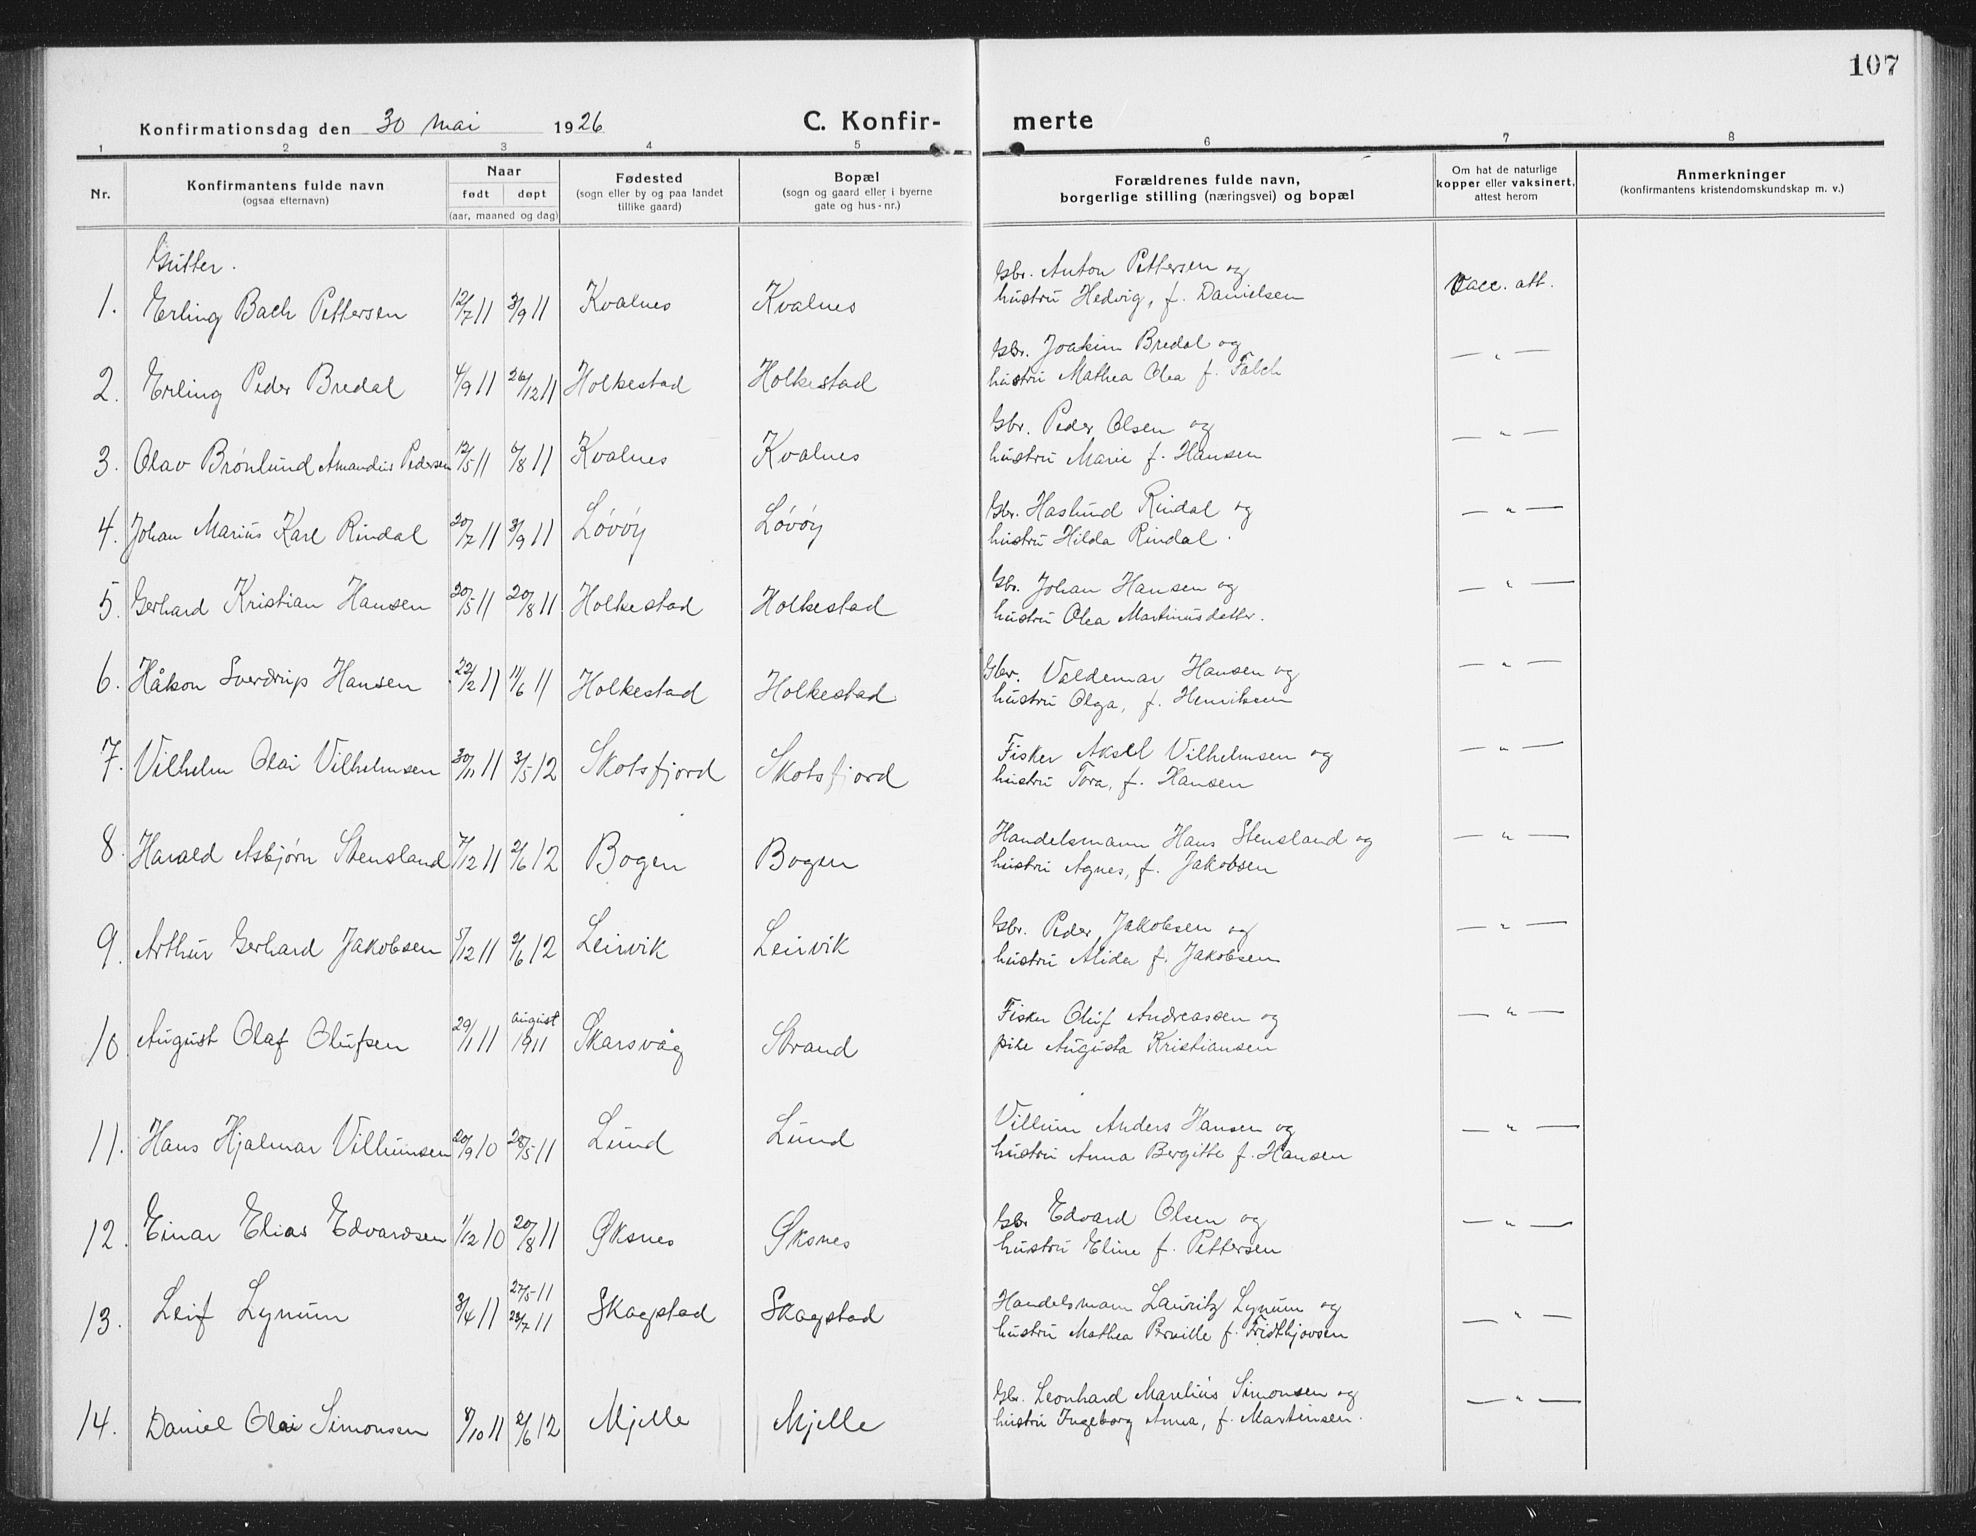 107
Konfirmationsdag den 30 mai 1926
C. Konfir- merte
1 2 3 4 5 6 7 8
Nr.
Konfirmantens fulde navn
(ogsaa efternavn)
Naar
født døpt
(aar, maaned og dag)
Fødested
(sogn eller by og paa landet
tillike gaard)
Bopæl
(sogn og gaard eller i byerne
gate og hus-nr.)
Forældrenes fulde navn,
borgerlige stilling (næringsvei) og bopæl
Om hat de naturlige
kopper eller vaksinert,
attest herom
Anmerkninger
(konfirmantens kristendomskundskap m. v.)
Gutter.
1. Erling Bach Pettersen 12/7 11 3/9 11 Kvalnes Kvalnes
Gbr. Anton Pettersen og
hustru Hedvig, f. Danielsen
Vacc. att.
2. Erling Peder Bredal 4/9 11 26/12 11 Holkestad Holkestad
Gbr. Joakim Bredal og
hustru Mathea Olea f. Falch
— " —
3. Olav Brønlund Amandus Pedersen 12/5 11 6/8 11 Kvalnes Kvalnes
Gbr. Peder Olsen og
hustru Marie f. Hansen
— " —
4. Johan Marius Karl Rindal 20/7 11 3/9 11 Løvøy Løvøy
Gbr. Haslund Rindal og
hustru Hilda Rindal.
— " —
5. Gerhard Kristian Hansen 20/5 11 20/8 11 Holkestad Holkestad
Gbr. Johan Hansen og
hustru Olea Martinusdatter.
— " —
6. Håkon Sverdrup Hansen 22/2 11 11/6 11 Holkestad Holkestad
Gbr. Valdemar Hansen og
hustru Olga, f. Henriksen
— " —
7. Vilhelm Olai Vilhelmsen 30/11 11 3/5 12 Skotsfjord Skotsfjord
Fisker Aksel Vilhelmsen og
hustru Tora, f. Hansen
— " —
8. Harald Asbjørn Stensland 7/12 11 2/6 12 Bogen Bogen
Handelsmann Hans Stensland og
hustru Agnes, f. Jakobsen
— " —
9. Arthur Gerhard Jakobsen 5/12 11 2/6 12 Leirvik Leirvik
Gbr. Peder Jakobsen og
hustru Alida f. Jakobsen
— " —
10 August Olaf Olufsen 29/1 11 august 1911 Skarsvåg Strand
Fisker Oluf Andreassen og
pike Augusta Kristiansen
— " —
11. Hans Hjalmar Villumsen 20/9 10 28/5 11 Lund Lund
Villum Anders Hansen og
hustru Anna Bergitte f. Hansen
— " —
12. Einar Elias Edvardsen 1/12 10 20/8 11 Øksnes Øksnes
Gbr Edvard Olsen og
hustru Eline f. Pettersen
— " —
13. Leif Lynum 3/4 11 27/5 11 23/7 11 Skagstad Skagstad
Handelsmann Lauritz Lynum og
hustru Mathea Pernille f. Fridthjovsen
— " —
14. Daniel Olai Simonsen 8/10 11 2/6 12 Mjelle Mjelle
Gbr. Leonhard Marelius Simonsen og
hustru Ingeborg Anna, f. Martinsen.
— " —